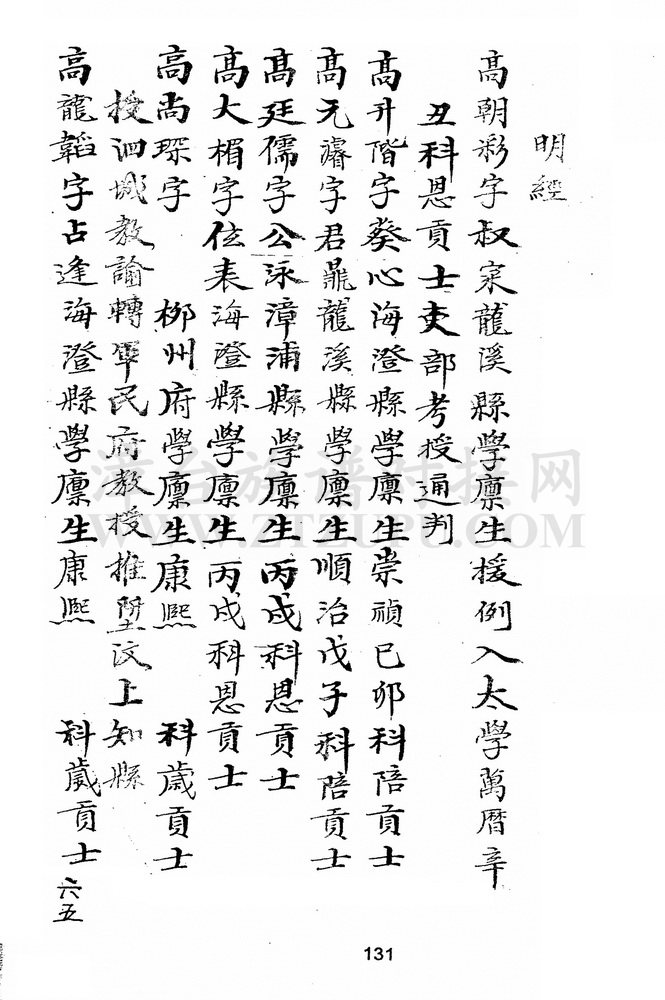 明經
高朝彩字叔宷龍溪縣學廪生援例入太學萬曆辛
丑科恩貢士吏部考授通判
高升階字葵心海澄縣學廪生崇禎己卯科陪貢士
高元濬字君鼎龍溪縣學廪生順治戊子科陪貢士
高廷儒字公泳漳浦縣學廪生丙戌科恩貢士
高大楣字位表海澄縣學廪生丙戌科恩貢士
高尚琛字 柳州府學廪生康熙 科歲貢士
授泗城教諭轉軍民府教授推陞汶上知縣
高龍韜字占逢海澄縣學廪生康熙 科歲貢士
六五
漳台族谱对接网
WWW.ZTZUPU.COM
131